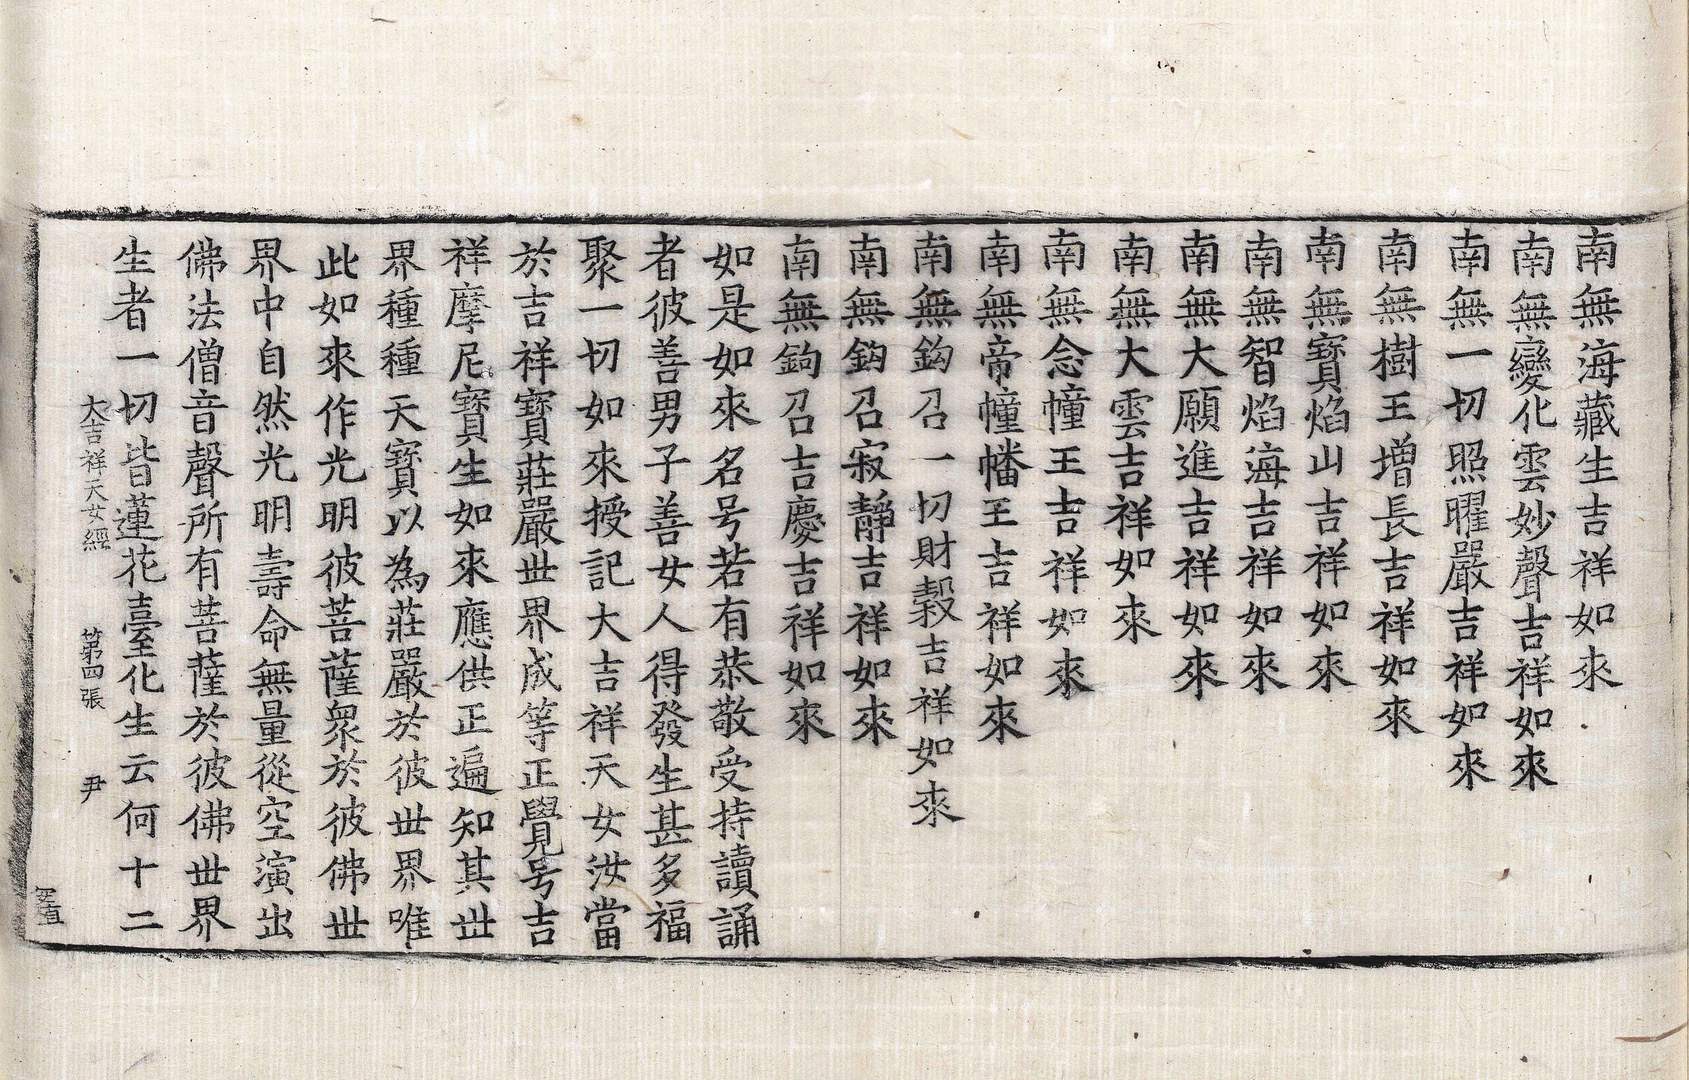 南無海藏生吉祥如來
南無變化雲妙聲吉祥如來
南無一切照曜嚴吉祥如來
南無樹王增長吉祥如來
南無寶焰山吉祥如來
南無智焰海吉祥如來
南無大願進吉祥如來
南無大雲吉祥如來
南無念幢王吉祥如來
南無帝幢幡王吉祥如來
南無鈎召一切財穀吉祥如來
南無鈎召寂靜吉祥如來
南無鉤召吉慶吉祥如來
如是如來名号若有恭敬受持讀誦
者彼善男子善女人得發生甚多福
聚一切如來授記大吉祥天女汝當
於吉祥寶莊嚴世界成等正覺号吉
祥摩尼寶生如來應供正遍知其世
界種種天寶以為莊嚴於彼世界唯
此如來作光明彼菩薩眾於彼佛世
界中自然光明壽命無量從空演出
佛法僧音聲所有菩薩於彼佛世界
生者一切皆蓮花臺化生云何十二
大吉祥天女經 第四張 尹